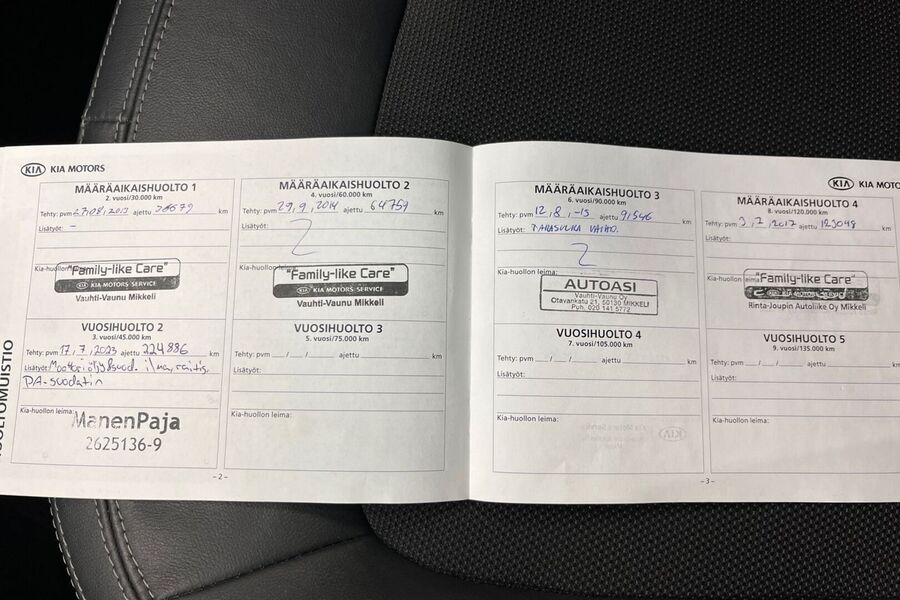 KIA KIA MOTORS
MÄÄRÄAIKAISHUOLTO 1
2. vuosi/30.000 km
Tehty: pvm 27.08.2013 ajettu 36679 km
Lisätyöt: –
Kia-huollon
"Family-like Care"
KIA KIA MOTORS SERVICE
Vauhti-Vaunu Mikkeli
MÄÄRÄAIKAISHUOLTO 2
4. vuosi/60.000 km
Tehty: pvm 29.9.2014 ajettu 64759 km
Lisätyöt:
Kia-huollon
"Family-like Care"
KIA KIA MOTORS SERVICE
Vauhti-Vaunu Mikkeli
VUOSIHUOLTO 2
3. vuosi/45.000 km
Tehty: pvm 17.7.2023 ajettu 224886 km
Lisätyöt: Moottoriöljy&suod. ilma, raitis,
PA-suodatin
Kia-huollon leima:
ManenPaja
2625136-9
VUOSIHUOLTO 3
5. vuosi/75.000 km
Tehty: pvm __/__/__ ajettu km
Lisätyöt:
Kia-huollon leima:
HUOLTOMUISTIO
-2-
KIA KIA MOTO
MÄÄRÄAIKAISHUOLTO 3
6. vuosi/90.000 km
Tehty: pvm 12.8.-15 ajettu 91546 km
Lisätyöt: VAIHO.
Kia-huollon leima:
AUTOASI
Vauhti-Vaunu Oy
Otavankatu 21, 50130 MIKKELI
Puh. 020 141 5772
MÄÄRÄAIKAISHUOLTO 4
8. vuosi/120.000 km
Tehty: pvm 3.7.2017 ajettu 123048 km
Lisätyöt:
Kia-huollon leima:
"Family-like Care"
Rinta-Joupin Autoliike Oy Mikkeli
VUOSIHUOLTO 4
7. vuosi/105.000 km
Tehty: pvm __/__/__ ajettu km
Lisätyöt:
Kia-huollon leima:
VUOSIHUOLTO 5
9. vuosi/135.000 km
Tehty: pvm __/__/__ ajettu km
Lisätyöt:
Kia-huollon leima:
-3-